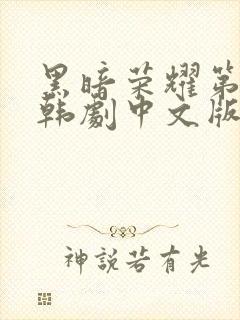 黑暗荣耀第
韩劇中文版
神說若有光